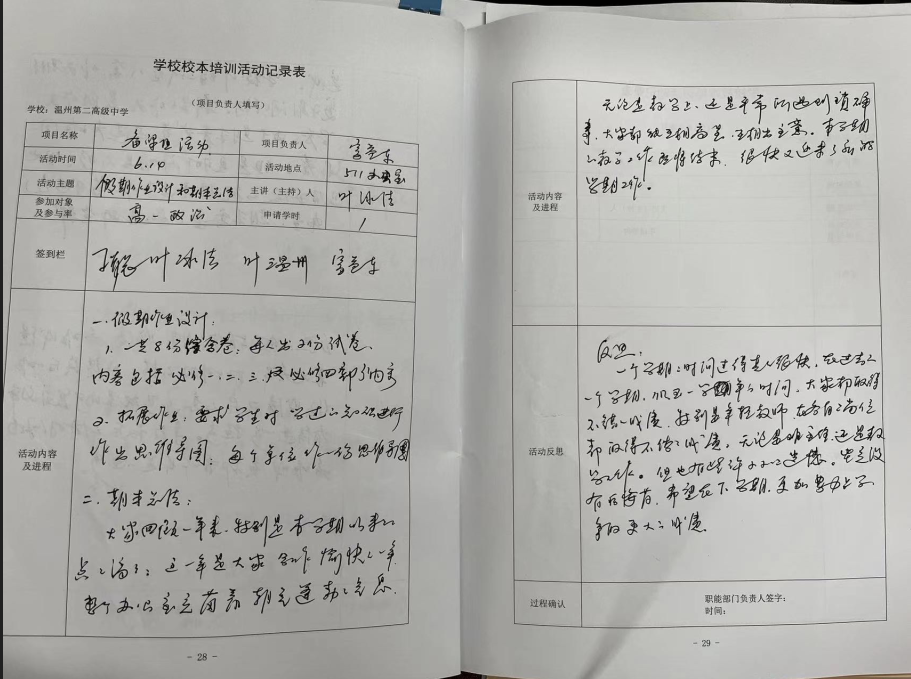 学校校本培训活动记录表
(项目负责人填写)
学校：温州第二高级中学
项目名称 备课组活动 项目负责人
活动时间 6.10 活动地点 511办公室
活动主题 假期作业设计和期末总结 主讲（主持）人 叶冰洁
参加对象及参与率 高一政治 申请学时 1
签到栏 叶冰洁 叶温州
活动内容及进程
一.假期作业设计：
1. 一共8份综合卷，每人出2份试卷.
内容包括必修一、二、三、必修四部分内容
2. 拓展作业：要求学生对学过的知识进行
作出思维导图，每个单位作一份思维导图
二. 期末总结：
大家回顾一年来，特别是本学期以来的
点点滴滴，这一年是大家合作愉快的一年.
整个办公室充满着
- 28 -
活动内容及进程
无论是教学上，还是平常所遇到琐碎
事，大家都能互相商量、互相出主意。本学期
的教学工作即将结束，很快又迎来了新的
学期工作。
活动反思
反思：
一个学期的时间过得真的很快，在过去的
一个学期，大家都取得
不错的成绩，特别是年轻教师，在各自的岗位
都取得不错的成绩，无论是班主任还是教
学工作。但也有些许的遗憾。
希望在下学期，更加努力
争取更大的成绩
过程确认
职能部门负责人签字：
时间：
- 29 -